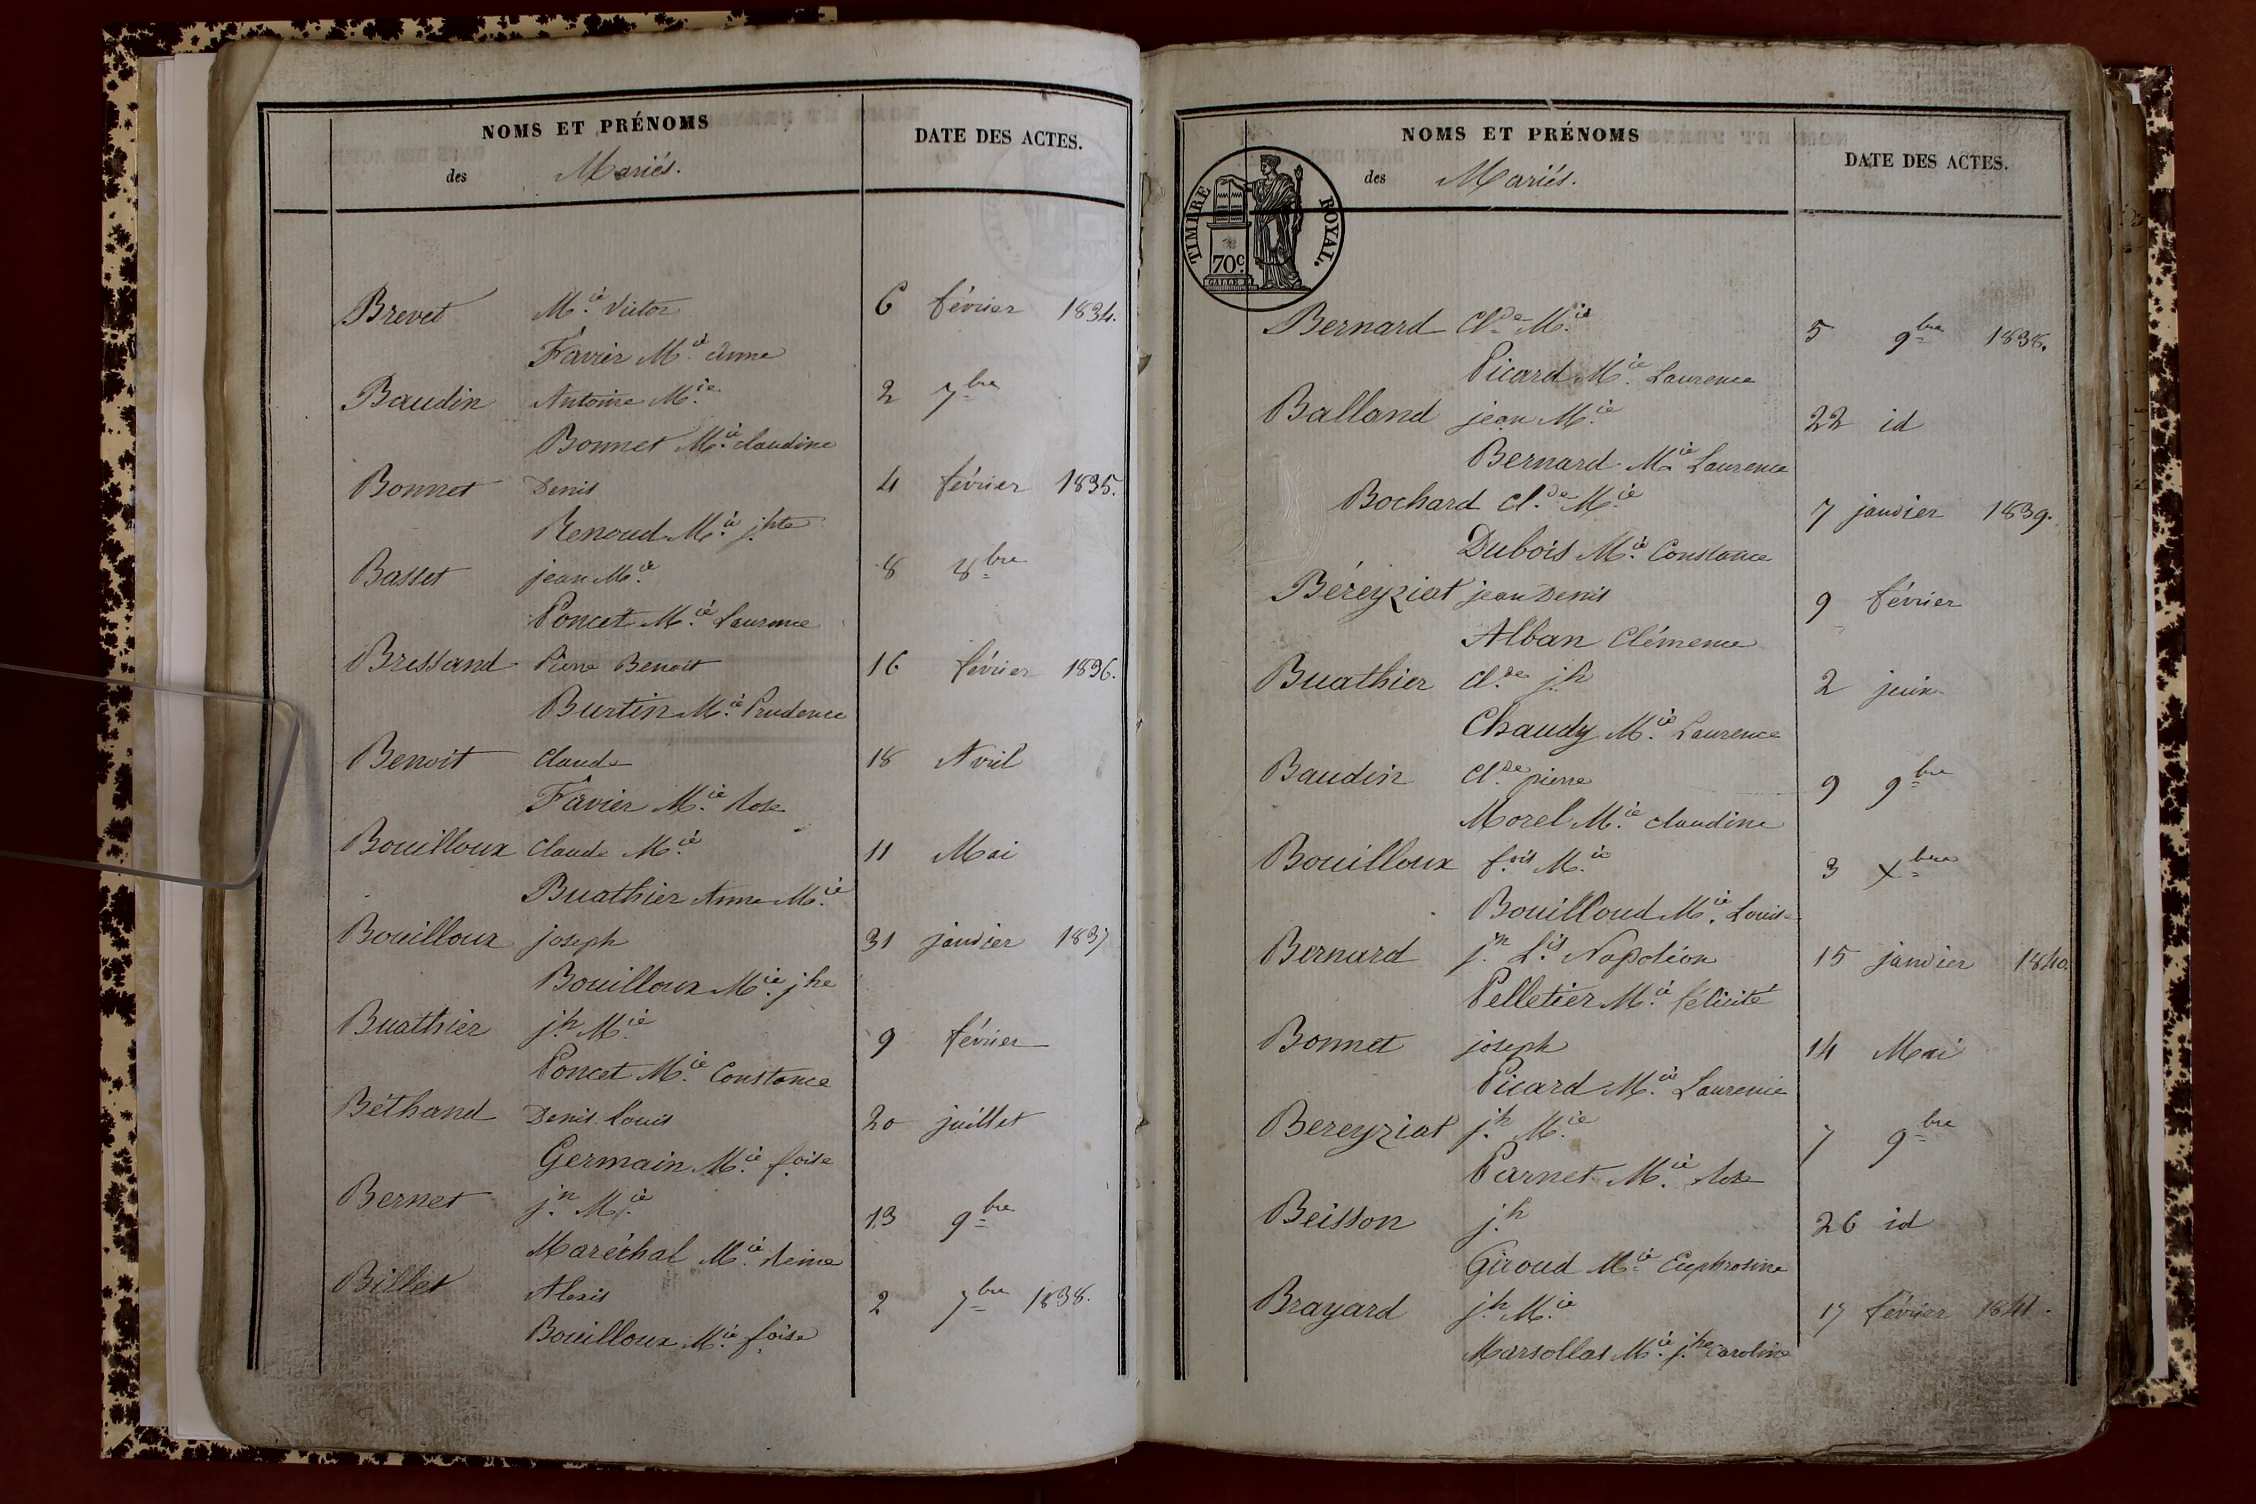 NOMS ET PRÉNOMS
des Mariés.
DATE DES ACTES.
Brevet M.ie Victor 6 février 1834.
Favier M.ie Anne
Baudin Antoine M.ie 2 7bre
Bonnet M.ie claudine
Bonnet Denis 4 février 1835.
Renoud M.ie jhte
Basset jean M.ie 8 8bre
Poncet M.ie Laurence
Bressand Pierre Benoit 16 février 1836.
Burtin M.ie Prudence
Benoit claude 18 Avril
Favier M.ie Rose
Bouilloux claude M.ie 11 Mai
Buathier Anne M.ie
Bouilloux joseph 31 janvier 1837
Bouilloux M.ie jhe
Buathier j.h M.ie 9 février
Poncet M.ie Constance
Béthand Denis Louis 20 juillet
Germain M.ie foise
Bernet j.n M.ie 13 9bre
Maréchal M.ie Reine
Billet Alexis 2 7bre 1838.
Bouilloux M.ie foise
NOMS ET PRÉNOMS
des Mariés.
DATE DES ACTES.
TIMBRE ROYAL.
70c.
Bernard Cl.de M.ie 5 9bre 1838.
Picard M.ie Laurence
Balland jean M.ie 22 id
Bernard M.ie Laurence
Bochard cl.de M.ie 7 janvier 1839.
Dubois M.ie Constance
Béreyziat jean Denis 9 février
Alban Clémence
Buathier cl.de j.h 2 juin
Chaudy M.ie Laurence
Baudin cl.de pierre 9 9bre
Morel M.ie claudine
Bouilloux f.ois M.ie 3 Xbre
Bouilloud M.ie Louise
Bernard j.n L.is Napoléon 15 janvier 1840.
Pelletier M.ie félicité
Bonnet joseph 14 Mai
Picard M.ie Laurence
Bereyziat j.h M.ie 7 9bre
Parnet M.ie Rose
Beisson j.h 26 id
Giroud M.ie Euphrosine
Brayard j.h M.ie 17 février 1841.
Marsollat M.ie j.he Caroline